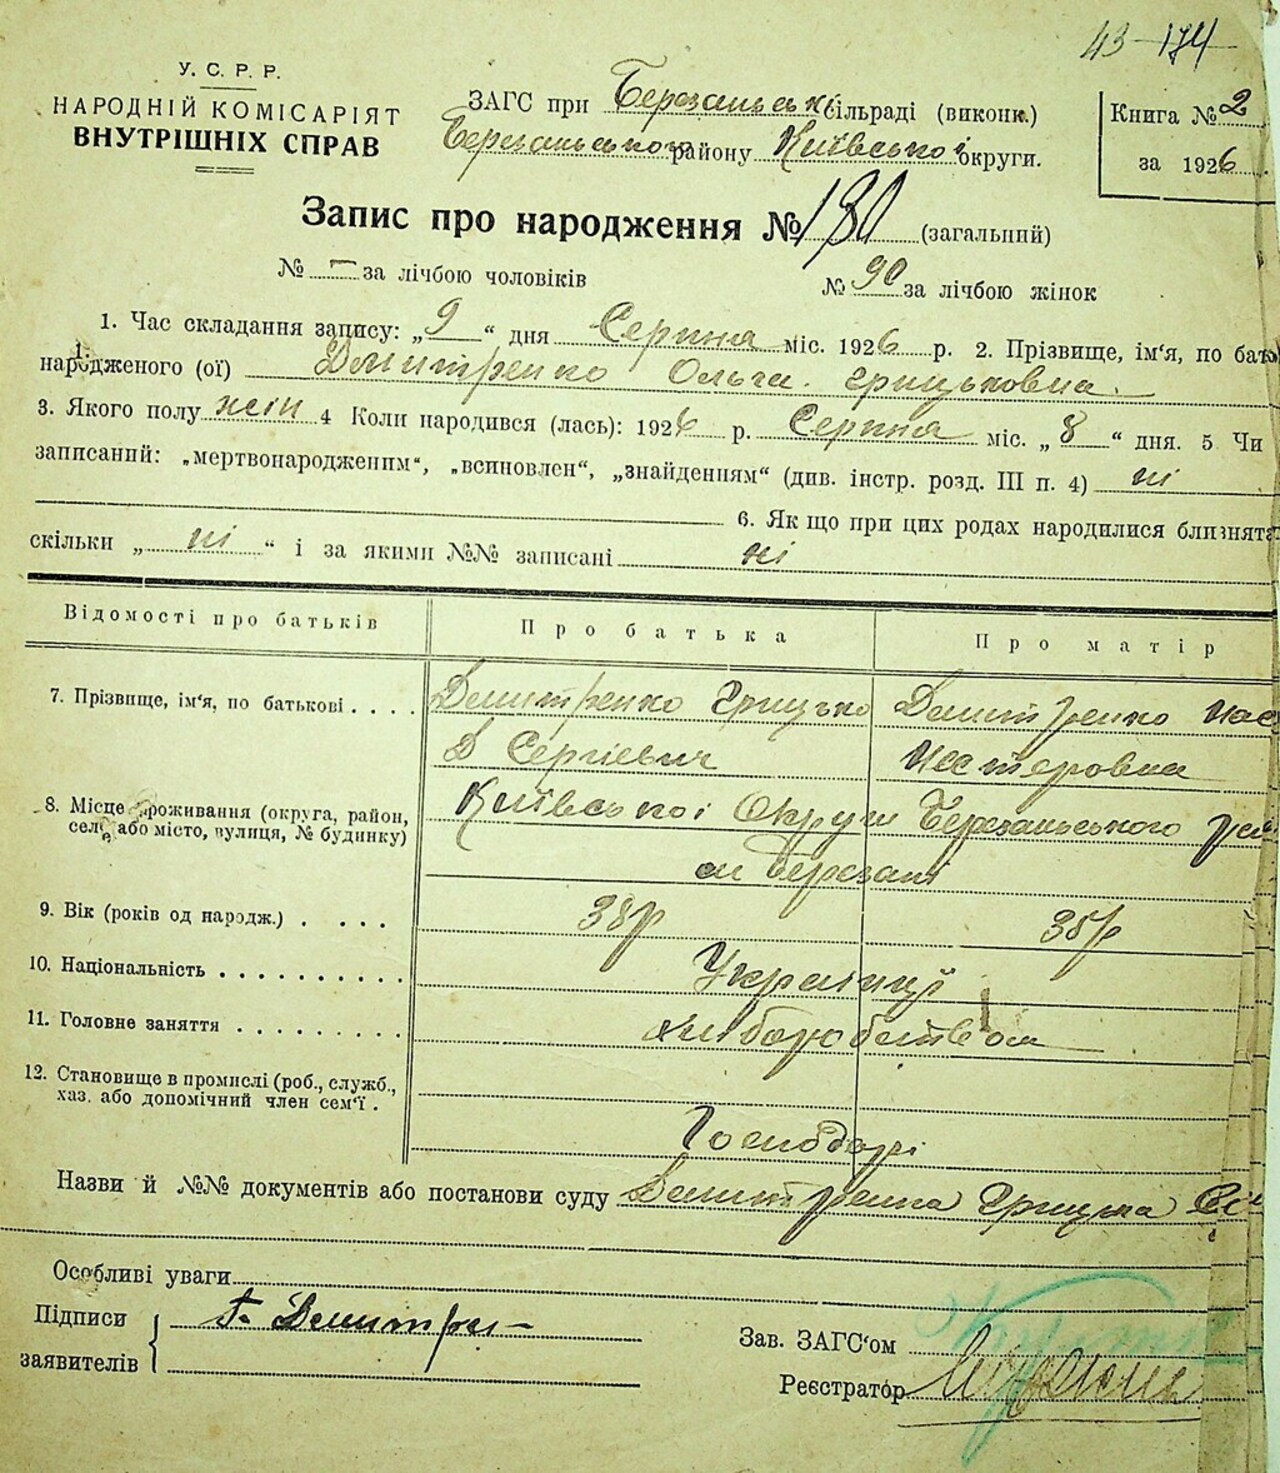 43-174
У. С. Р. Р.
НАРОДНІЙ КОМІСАРІЯТ
ВНУТРІШНІХ СПРАВ
ЗАГС при Березанські сільраді (виконк.)
Березанського району Київської округи.
Книга № 2
за 1926
Запис про народження № 180 (загальний)
№ – за лічбою чоловіків № 90 за лічбою жінок
1. Час складання запису: „9“ дня Серпня міс. 1926 р. 2. Прізвище, ім‘я, по бать
народженого (ої) Дмитренко Ольга Грицьковна.
3. Якого полу жін 4 Коли народився (лась): 1926 р. Серпня міс. „8“ дня. 5 Чи
записаний: „мертвонародженим“, „всиновлен“, „знайденням“ (див. інстр. розд. III п. 4) ні
6. Як що при цих родах народилися близнята
скільки „ні“ і за якими №№ записані ні
Відомості про батьків Про батька Про матір
7. Прізвище, ім‘я, по батькові . . . . Дмитренко Грицько Дмитренко Нас
Д Сергієвич Нестеровна
8. Місце проживання (округа, район, Київської Округи Березанського
село або місто, вулиця, № будинку) м Березані
9. Вік (років од народж.) . . . . 38р 35р
10. Національність . . . . . . . . . . Українці
11. Головне заняття . . . . . . . . . хліборобством
12. Становище в промислі (роб., служб.,
хаз. або допомічний член сем‘ї . Господарі
Назви й №№ документів або постанови суду Дмитренка Грицька
Особливі уваги
Підписи Г. Дмитрен-
заявителів
Зав. ЗАГС‘ом
Реєстратор